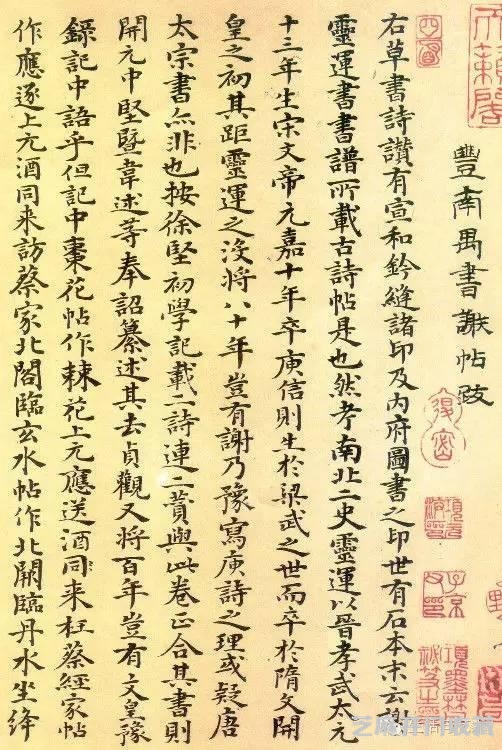 豐南禺書謝帖跋
右草書詩讚有宣和鈐縫諸印及內府圖書之印世有石本末云謝
靈運書書譜所載古詩帖是也然考南北二史靈運以晉孝武太元
十三年生宋文帝元嘉十年卒庾信則生於梁武之世而卒於隋文開
皇之初其距靈運之沒將八十年豈有謝乃豫寫庾詩之理或疑唐
太宗書亦非也按徐堅初學記載二詩連二贊與此卷正合其書則
開元中堅暨韋述等奉詔纂述其去貞觀又將百年豈有文皇豫
錄記中語乎但記中棗花帖作棘花上元應送酒同來在蔡經家帖
作應逐上元酒同來訪蔡家北閣臨玄水帖作北闕臨丹水坐絳
天籟閣
項元汴印
子京
芝麻開門收藏